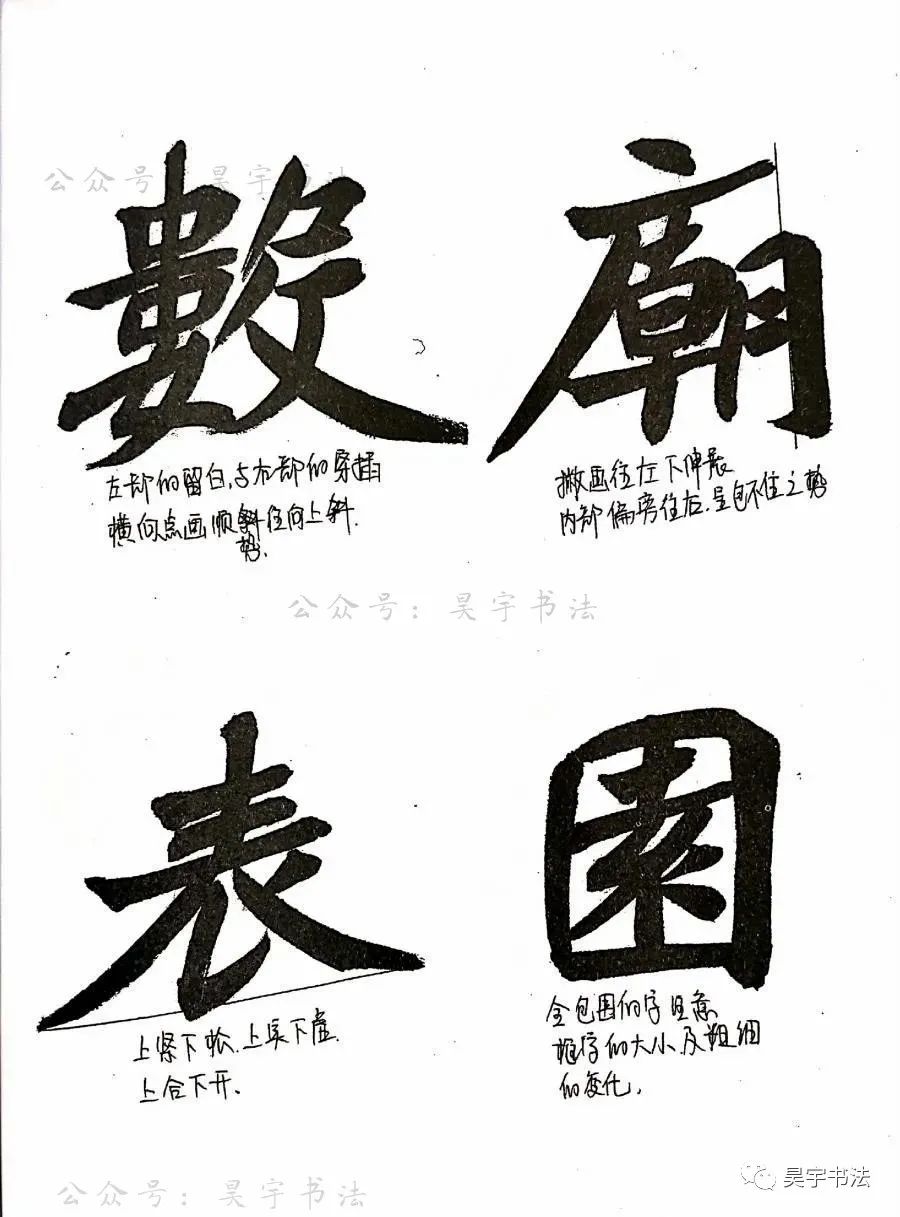 公众号：昊宇书法
數
廟
左部的留白，与右部的穿插
横向点画顺斜往向上斜.
势.
撇画往左下伸展
内部偏旁往右.呈包不住之势
公众号：昊宇书法
表
園
上紧下松.上实下虚.
上合下开.
全包围的字注意
框字的大小.及粗细
的变化,
昊宇书法
公众号：昊宇书法